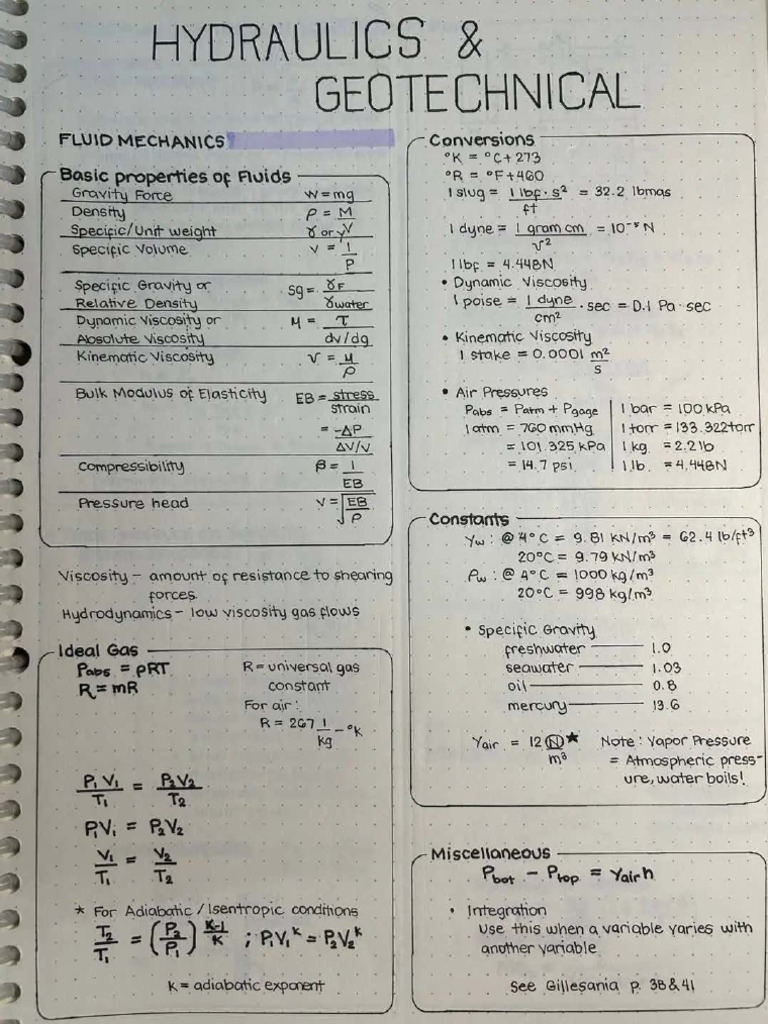 HYDRAULICS &
GEOTECHNICAL
FLUID MECHANICS
Basic properties of Fluids
Gravity Force W = mg
Density ρ = M/V
Specific/Unit weight γ or γ
Specific Volume V = 1/ρ
Specific Gravity or
Relative Density SG = γF/γwater
Dynamic Viscosity or
Absolute Viscosity μ = τ/dv/dg
Kinematic Viscosity ν = μ/ρ
Bulk Modulus of Elasticity EB = stress/strain
= -ΔP/ΔV/V
Compressibility β = 1/EB
Pressure head V = √EB/ρ
Viscosity – amount of resistance to shearing
forces.
Hydrodynamics – low viscosity gas flows
Ideal Gas
Pabs = ρRT
R = mR
R = universal gas
constant
For air:
R = 267 1/kg - °K
P₁V₁/T₁ = P₂V₂/T₂
P₁V₁ = P₂V₂
V₁/T₁ = V₂/T₂
* For Adiabatic / Isentropic conditions
T₂/T₁ = (P₂/P₁)^K-1/K ; P₁V₁^K = P₂V₂^K
K = adiabatic exponent
Conversions
°K = °C + 273
°R = °F + 460
1 slug = 1 lbf · s²/ft = 32.2 lbmas
1 dyne = 1 gram cm/v² = 10⁻⁵ N
1 lbf = 4.448N
• Dynamic Viscosity
1 poise = 1 dyne/cm² · sec = 0.1 Pa · sec
• Kinematic Viscosity
1 stake = 0.0001 m²/s
• Air Pressures
Pabs = Patm + Pgage
1 atm = 760 mmHg
= 101.325 kPa
= 14.7 psi
1 bar = 100 kPa
1 torr = 133.322torr
1 kg = 2.2 lb
1 lb. = 4.448N
Constants
γw : @ 4°C = 9.81 KN/m³ = 62.4 lb/ft³
20°C = 9.79 KN/m³
ρw : @ 4°C = 1000 kg/m³
20°C = 998 kg/m³
• Specific Gravity
freshwater — 1.0
seawater — 1.03
oil — 0.8
mercury — 13.6
γair = 12 N/m³ ★
Note : Vapor Pressure
= Atmospheric press-
ure, water boils!
Miscellaneous
Pbot - Ptop = γair h
• Integration
Use this when a variable varies with
another variable
See Gillesania p. 38 & 41